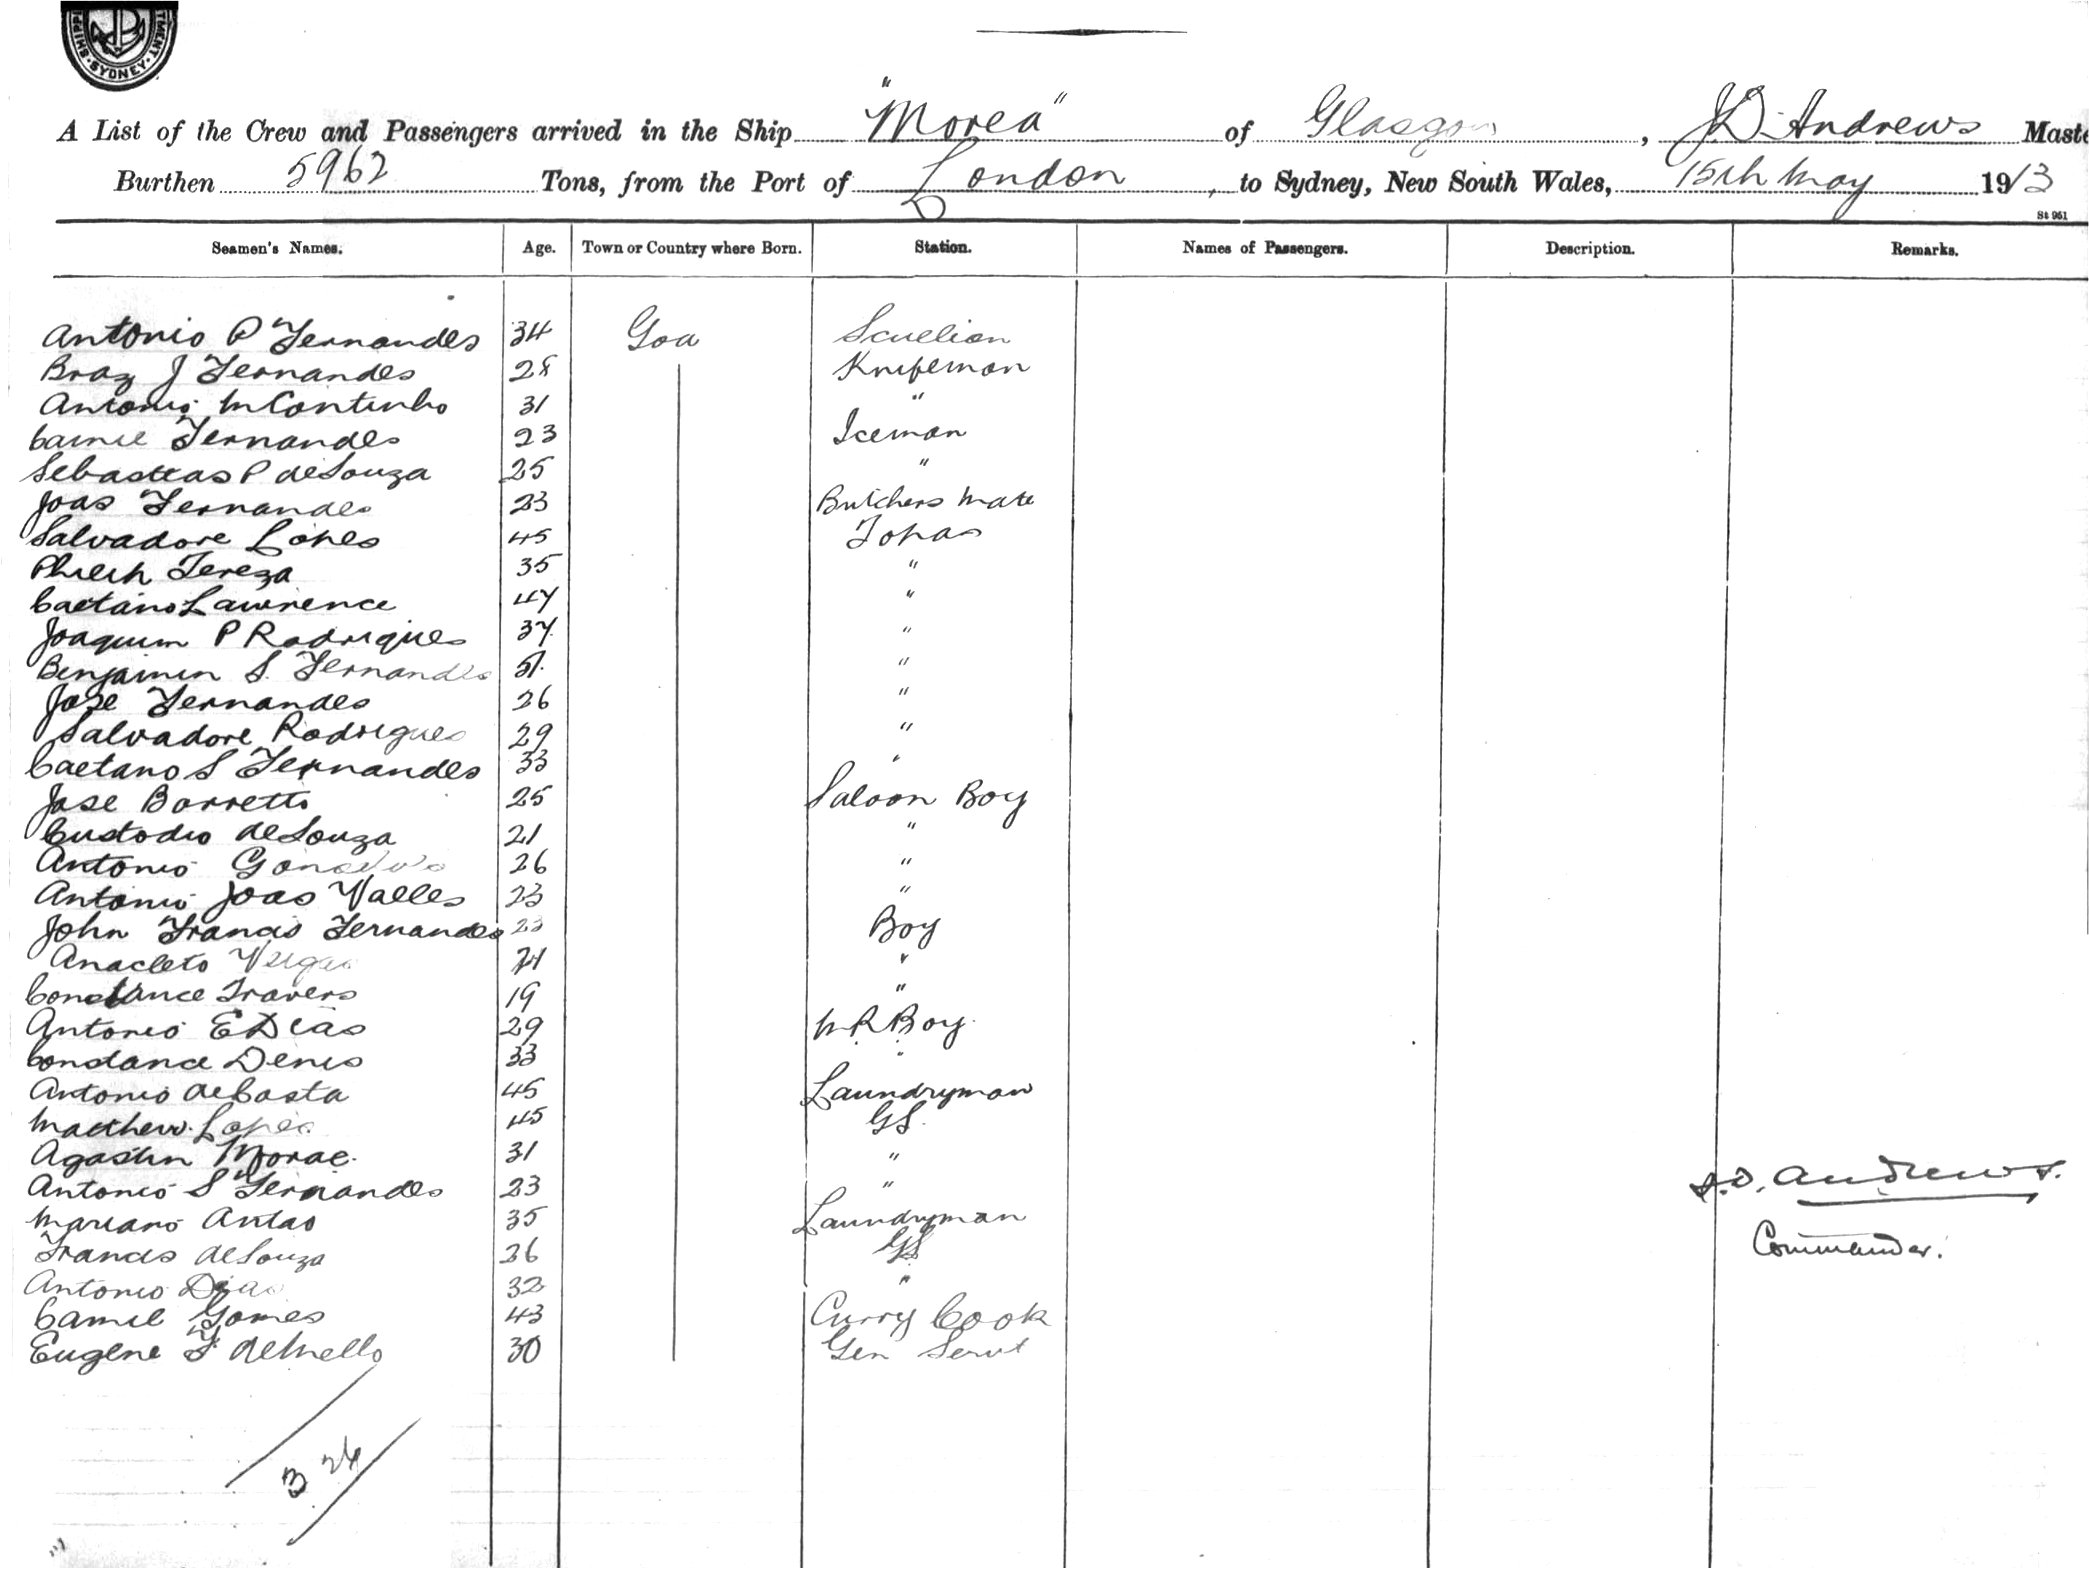 SHIPPI
TMENT
SYDNEY
A List of the Crew and Passengers arrived in the Ship "Morea" of Glasgow, J.D. Andrews Maste
Burthen 5962 Tons, from the Port of London, to Sydney, New South Wales, 15th May 1913
St 961
Seamen's Names. Age. Town or Country where Born. Station. Names of Passengers. Description. Remarks.
Antonio P Fernandes 34 Goa Scuelion
Braz J Fernandes 28 Knifeman
Antonio M Continho 31 "
Camil Fernandes 23 Iceman
Sebastias P deSouza 25 "
Joas Fernandes 23 Butchers Mate
Salvadore Lopes 45 Topas
Tereza 35 "
Caetano Lawrence 47 "
Joaquim P Rodrigues 37 "
Benjamin S. Fernandes "
Jose Fernandes 26 "
Salvadore Rodrigues 29 "
Caetano S Fernandes 33 "
Jose Barretto 25 Saloon Boy
Custodio deSouza 21 "
Antonio 26 "
Antonio Joas Valles 23 "
John Francis Fernandes 23 Boy
Anacleto "
Constance Travers 19 "
Antonio E Dias 29 M.R. Boy
Constance Denis 33 "
Antonio deCosta 45 Laundryman
Matthew Lopes 45 GS.
Agastin Morae 31 "
Antonio S Fernandes 23 "
Mariano Antao 35 Laundryman
Francis deSouza 26 GS
Antonio Dias 32 "
Camil Gomes 43 Curry Cook
Eugene F deMello 30 Gen Servt
J.D. Andrews.
Commander.
3 26